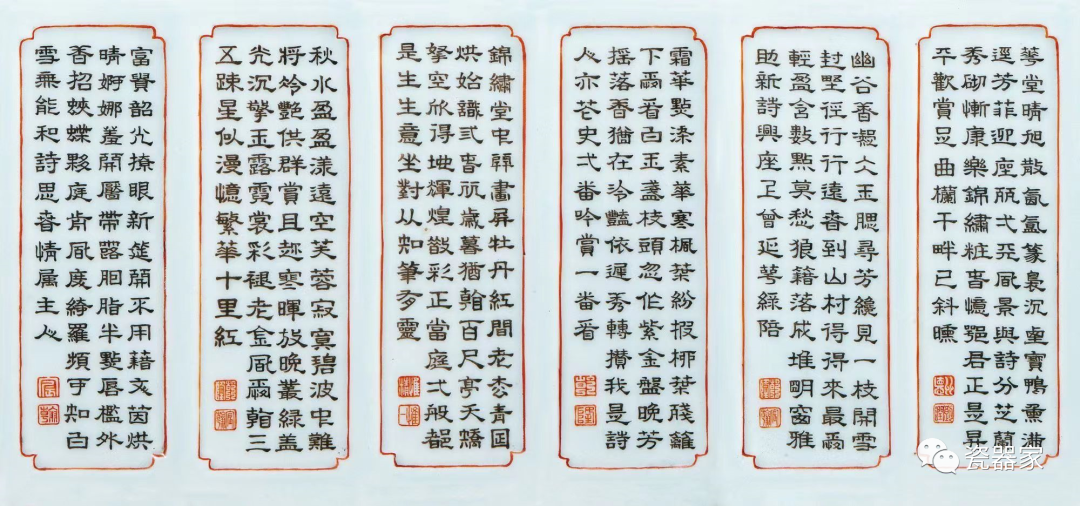 堂晴旭散氤氳篆裊沉寶鴨熏滿
逕芳菲迎座風景與詩分芝蘭
秀砌慚康樂錦繡粧春憶君正是昇
平歡賞是曲欄干畔已斜曛
幽谷香凝仌玉腮尋芳纔見一枝開雪
封野徑行行遠春到山村得得來最爾
輕盈含數點莫愁狼籍落成堆明窗雅
助新詩興座上曾延萼綠陪
霜華點染素華寒楓葉紛披柳葉殘籬
下爾看白玉盞枝頭忽作紫金盤晚芳
搖落香猶在冷豔依遲秀轉攢我是詩
人亦花史弌番吟賞一番看
錦繡堂中畫屏牡丹紅間老枩青因
烘始識弎春永歲暮猶百尺亭夭矯
拏空欣得地輝煌散彩正當庭弌般都
是生生意坐對從知筆有靈
秋水盈盈漾遠空芙蓉寂寞碧波中難
將艷供群賞且趂寒暉放晚叢綠蓋
光沉擎玉露霓裳彩褪老金風雨三
五疎星似漫憶繁華十里紅
富貴韶光撩眼新筵開不用藉文茵烘
晴婀娜羞開靨帶露胭脂半點唇檻外
香招蛺蝶夥庭前風度綺羅頻可知白
雪無能和詩思春情屬主人
瓷器家